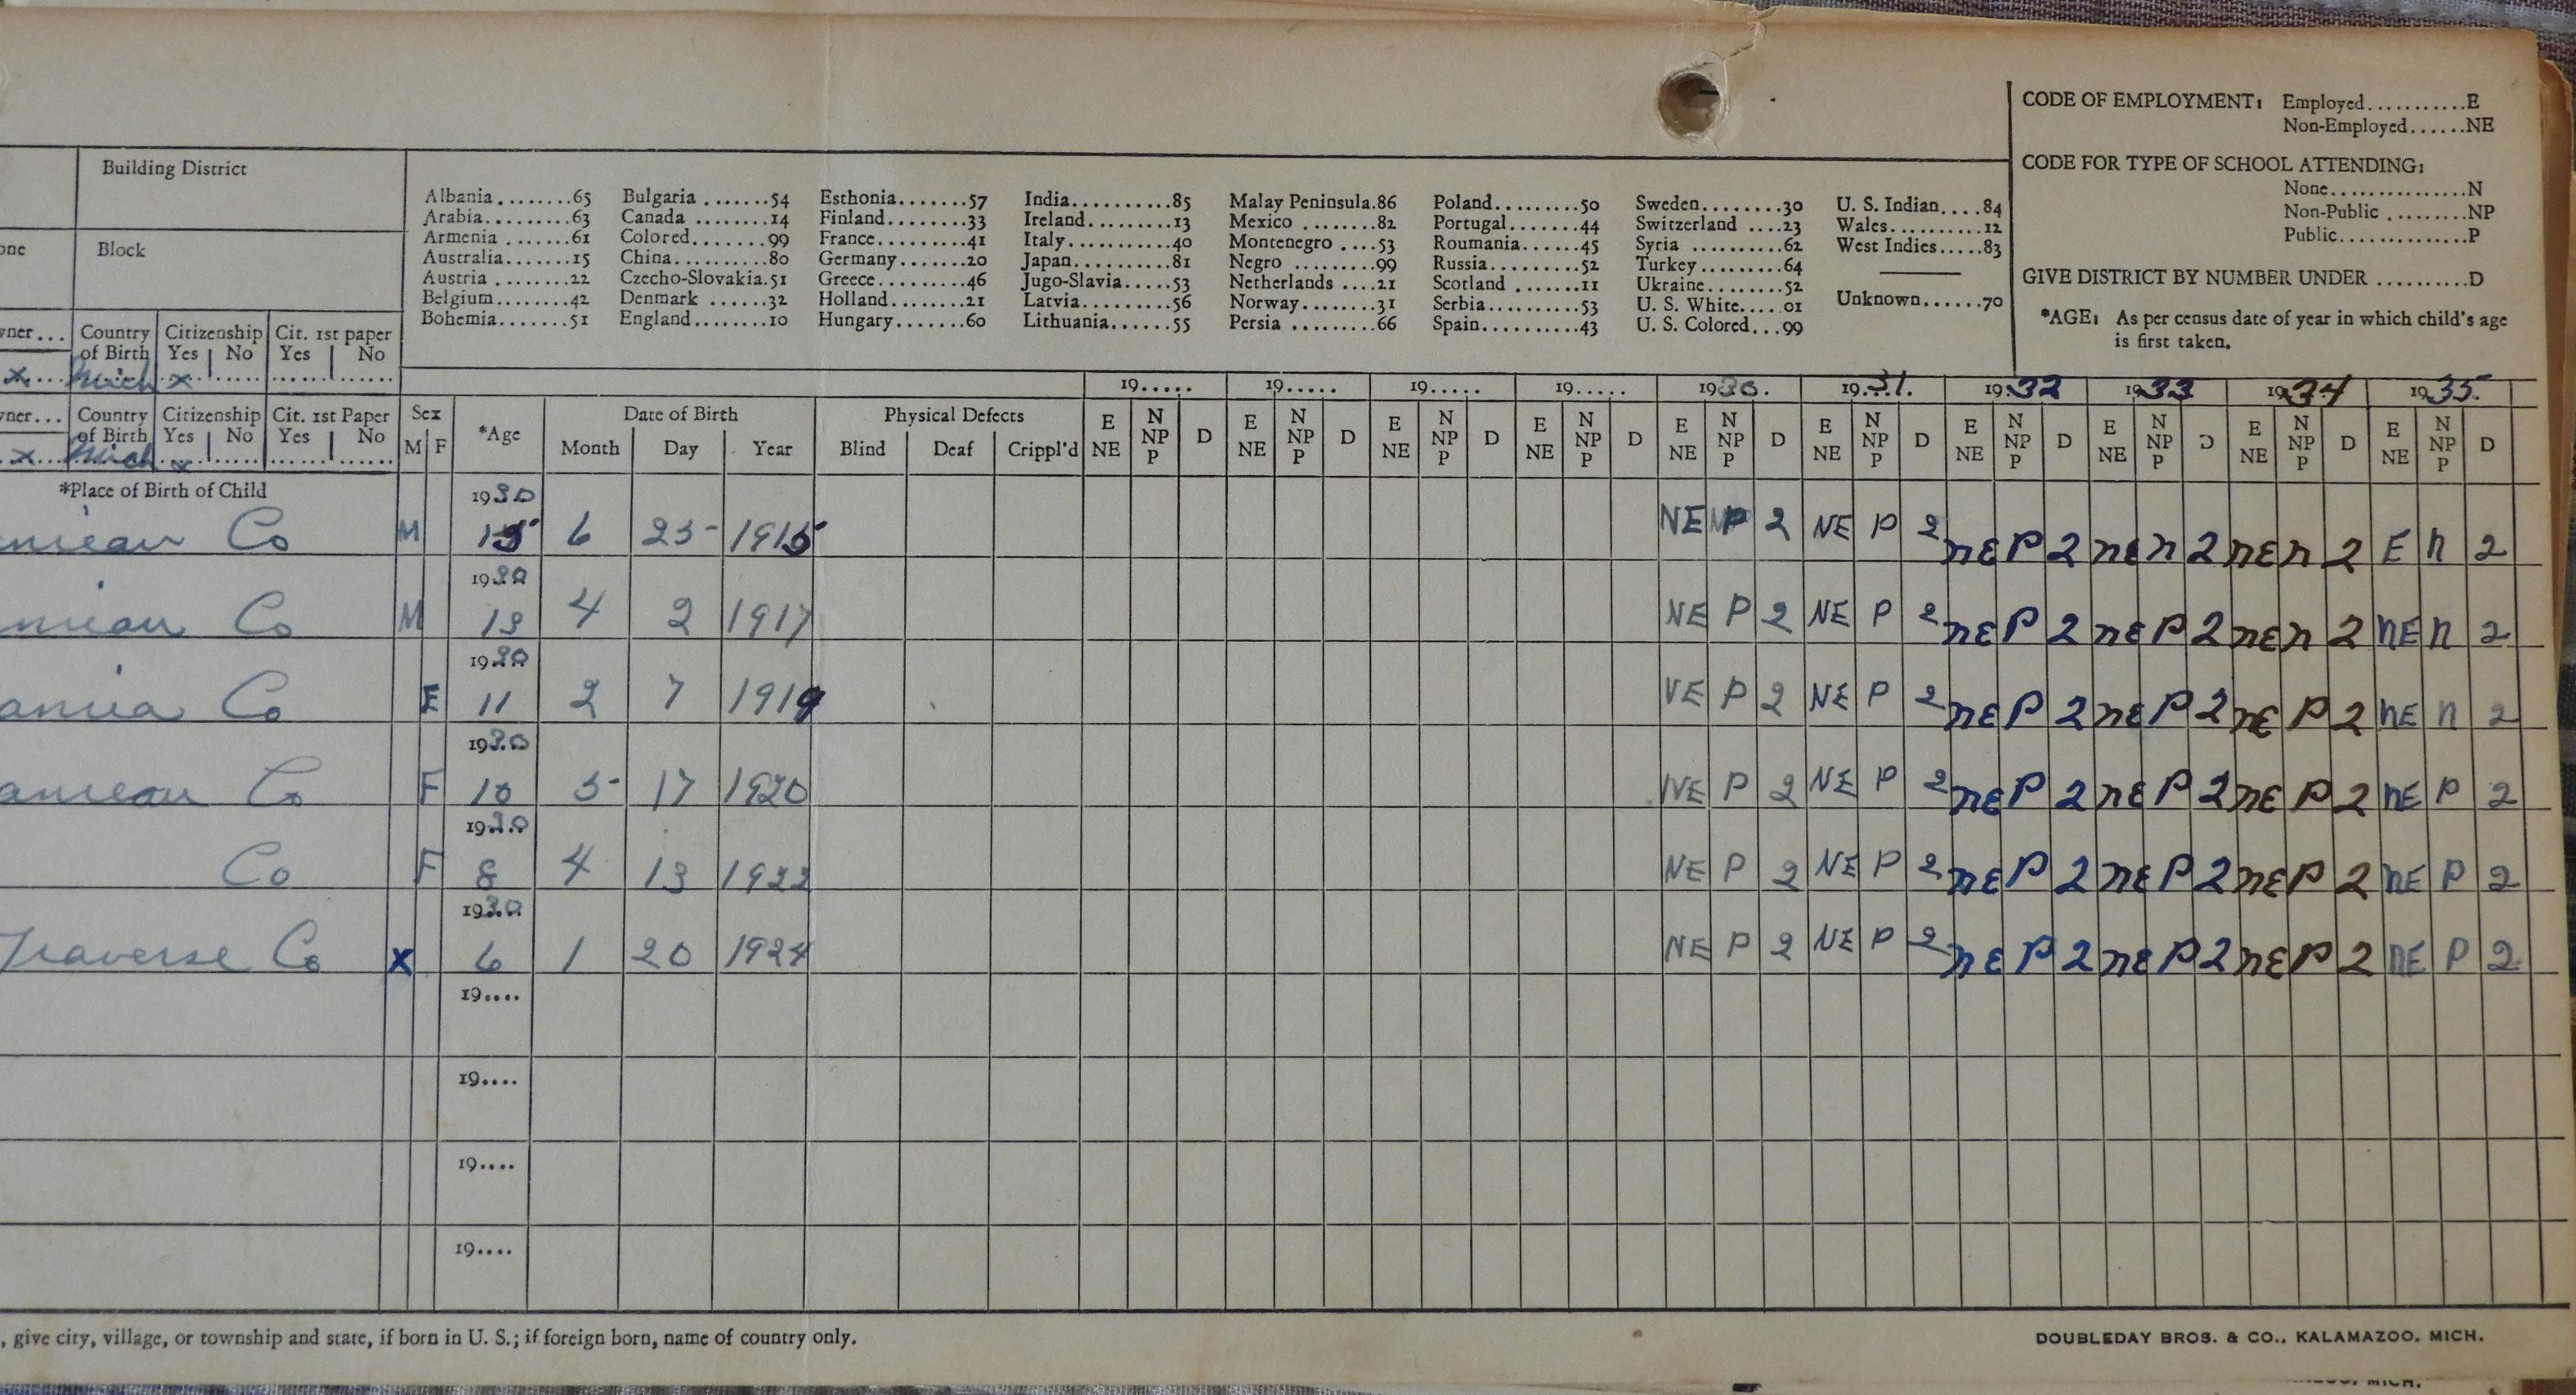 CODE OF EMPLOYMENT: Employed...........E
Non-Employed......NE
CODE FOR TYPE OF SCHOOL ATTENDING:
None...............N
Non-Public .........NP
Public.............P
GIVE DISTRICT BY NUMBER UNDER ..........D
*AGE: As per census date of year in which child's age
is first taken.
Building District
Block
Albania........65 Bulgaria .......54 Esthonia.......57 India..........85 Malay Peninsula.86 Poland.........50 Sweden........30 U. S. Indian....84
Arabia.........63 Canada ........14 Finland........33 Ireland.........13 Mexico ........82 Portugal.......44 Switzerland ....23 Wales..........12
Armenia .......61 Colored.......99 France.........41 Italy..........40 Montenegro ....53 Roumania......45 Syria .........62 West Indies.....83
Australia.......15 China.........80 Germany.......20 Japan..........81 Negro .........99 Russia.........52 Turkey........64
Austria ........22 Czecho-Slovakia.51 Greece.........46 Jugo-Slavia.....53 Netherlands ....21 Scotland .......11 Ukraine.......52
Belgium.......42 Denmark ......32 Holland........21 Latvia.........56 Norway........31 Serbia.........53 U. S. White....01 Unknown......70
Bohemia.......51 England........10 Hungary.......60 Lithuania......55 Persia .........66 Spain..........43 U. S. Colored...99
Country of Birth Citizenship Yes No Cit. 1st paper Yes No
x Mich x
19..... 19..... 19..... 19..... 1930. 1931. 1932 1933 1934 1935
Country of Birth Citizenship Yes No Cit. 1st Paper Yes No Sex M F *Age Date of Birth Month Day Year Physical Defects Blind Deaf Crippl'd
x Mich x
E NE N NP P D E NE N NP P D E NE N NP P D E NE N NP P D E NE N NP P D E NE N NP P D E NE N NP P D E NE N NP P D E NE N NP P D E NE N NP P D
*Place of Birth of Child
1930
Co M 15 6 25 1915 NE P 2 NE P 2 nE P 2 nE n 2 nE n 2 E n 2
1930
Co M 13 4 2 1917 NE P 2 NE P 2 nE P 2 nE P 2 nE n 2 nE n 2
1930
Co F 11 2 7 1919 NE P 2 NE P 2 nE P 2 nE P 2 nE P 2 nE n 2
1930
Co F 10 5 17 1920 NE P 2 NE P 2 nE P 2 nE P 2 nE P 2 nE P 2
1930
Co F 8 4 13 1922 NE P 2 NE P 2 nE P 2 nE P 2 nE P 2 nE P 2
1930
Traverse Co x 6 1 20 1924 NE P 2 NE P 2 nE P 2 nE P 2 nE P 2 nE P 2
19....
19....
19....
19....
, give city, village, or township and state, if born in U. S.; if foreign born, name of country only.
DOUBLEDAY BROS. & CO., KALAMAZOO, MICH.